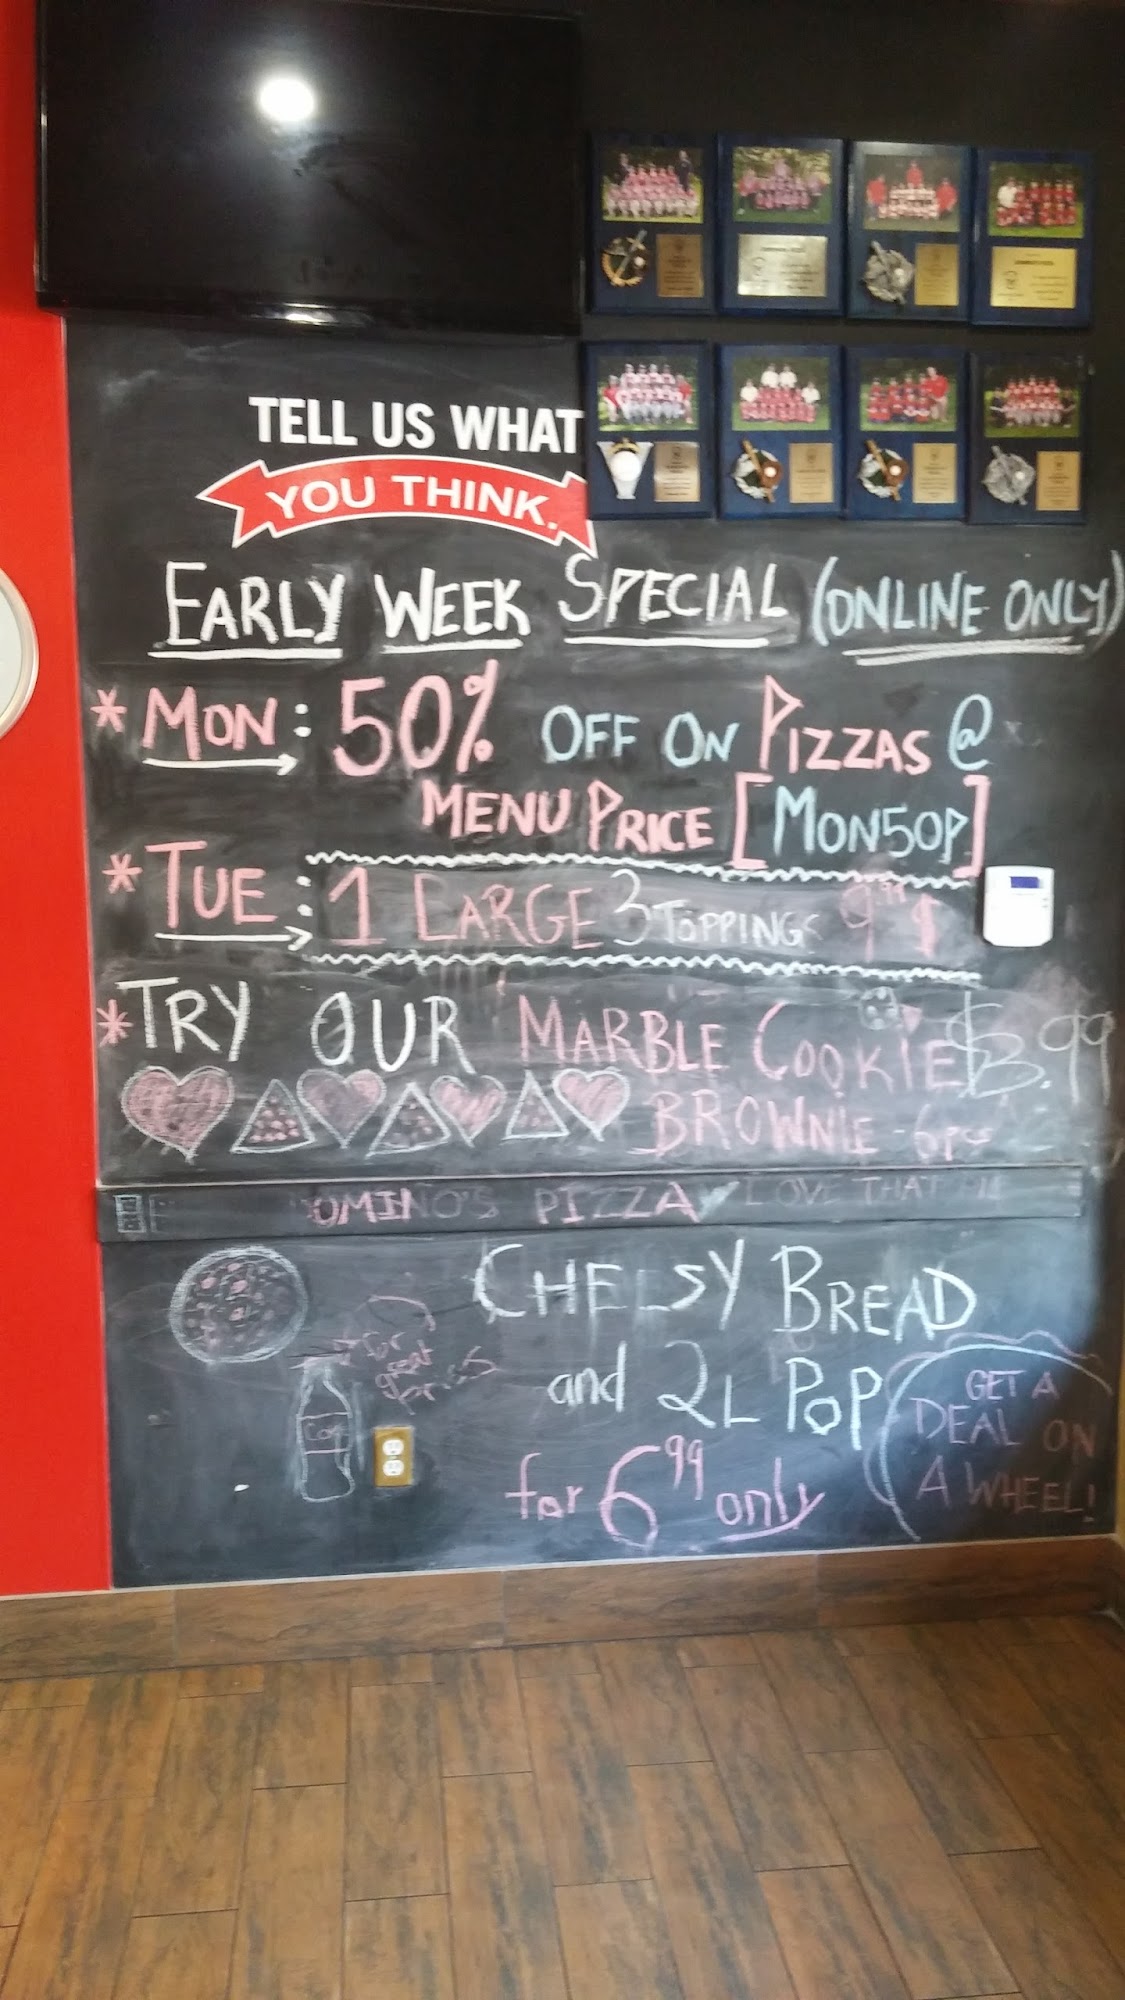 TELL US WHAT
YOU THINK.
EARLY WEEK SPECIAL (ONLINE ONLY)
* MON: 50% OFF ON PIZZAS @
MENU PRICE [MON50P]
* TUE: 1 LARGE 3 TOPPINGS 9.99 $
* TRY OUR MARBLE COOKIE $3.99
BROWNIE - 6pcs
OMINO'S PIZZA LOVE THAT
CHEESY BREAD
and 2L POP
for 6.99 only
for
great
GET A
DEAL ON
A WHEEL!